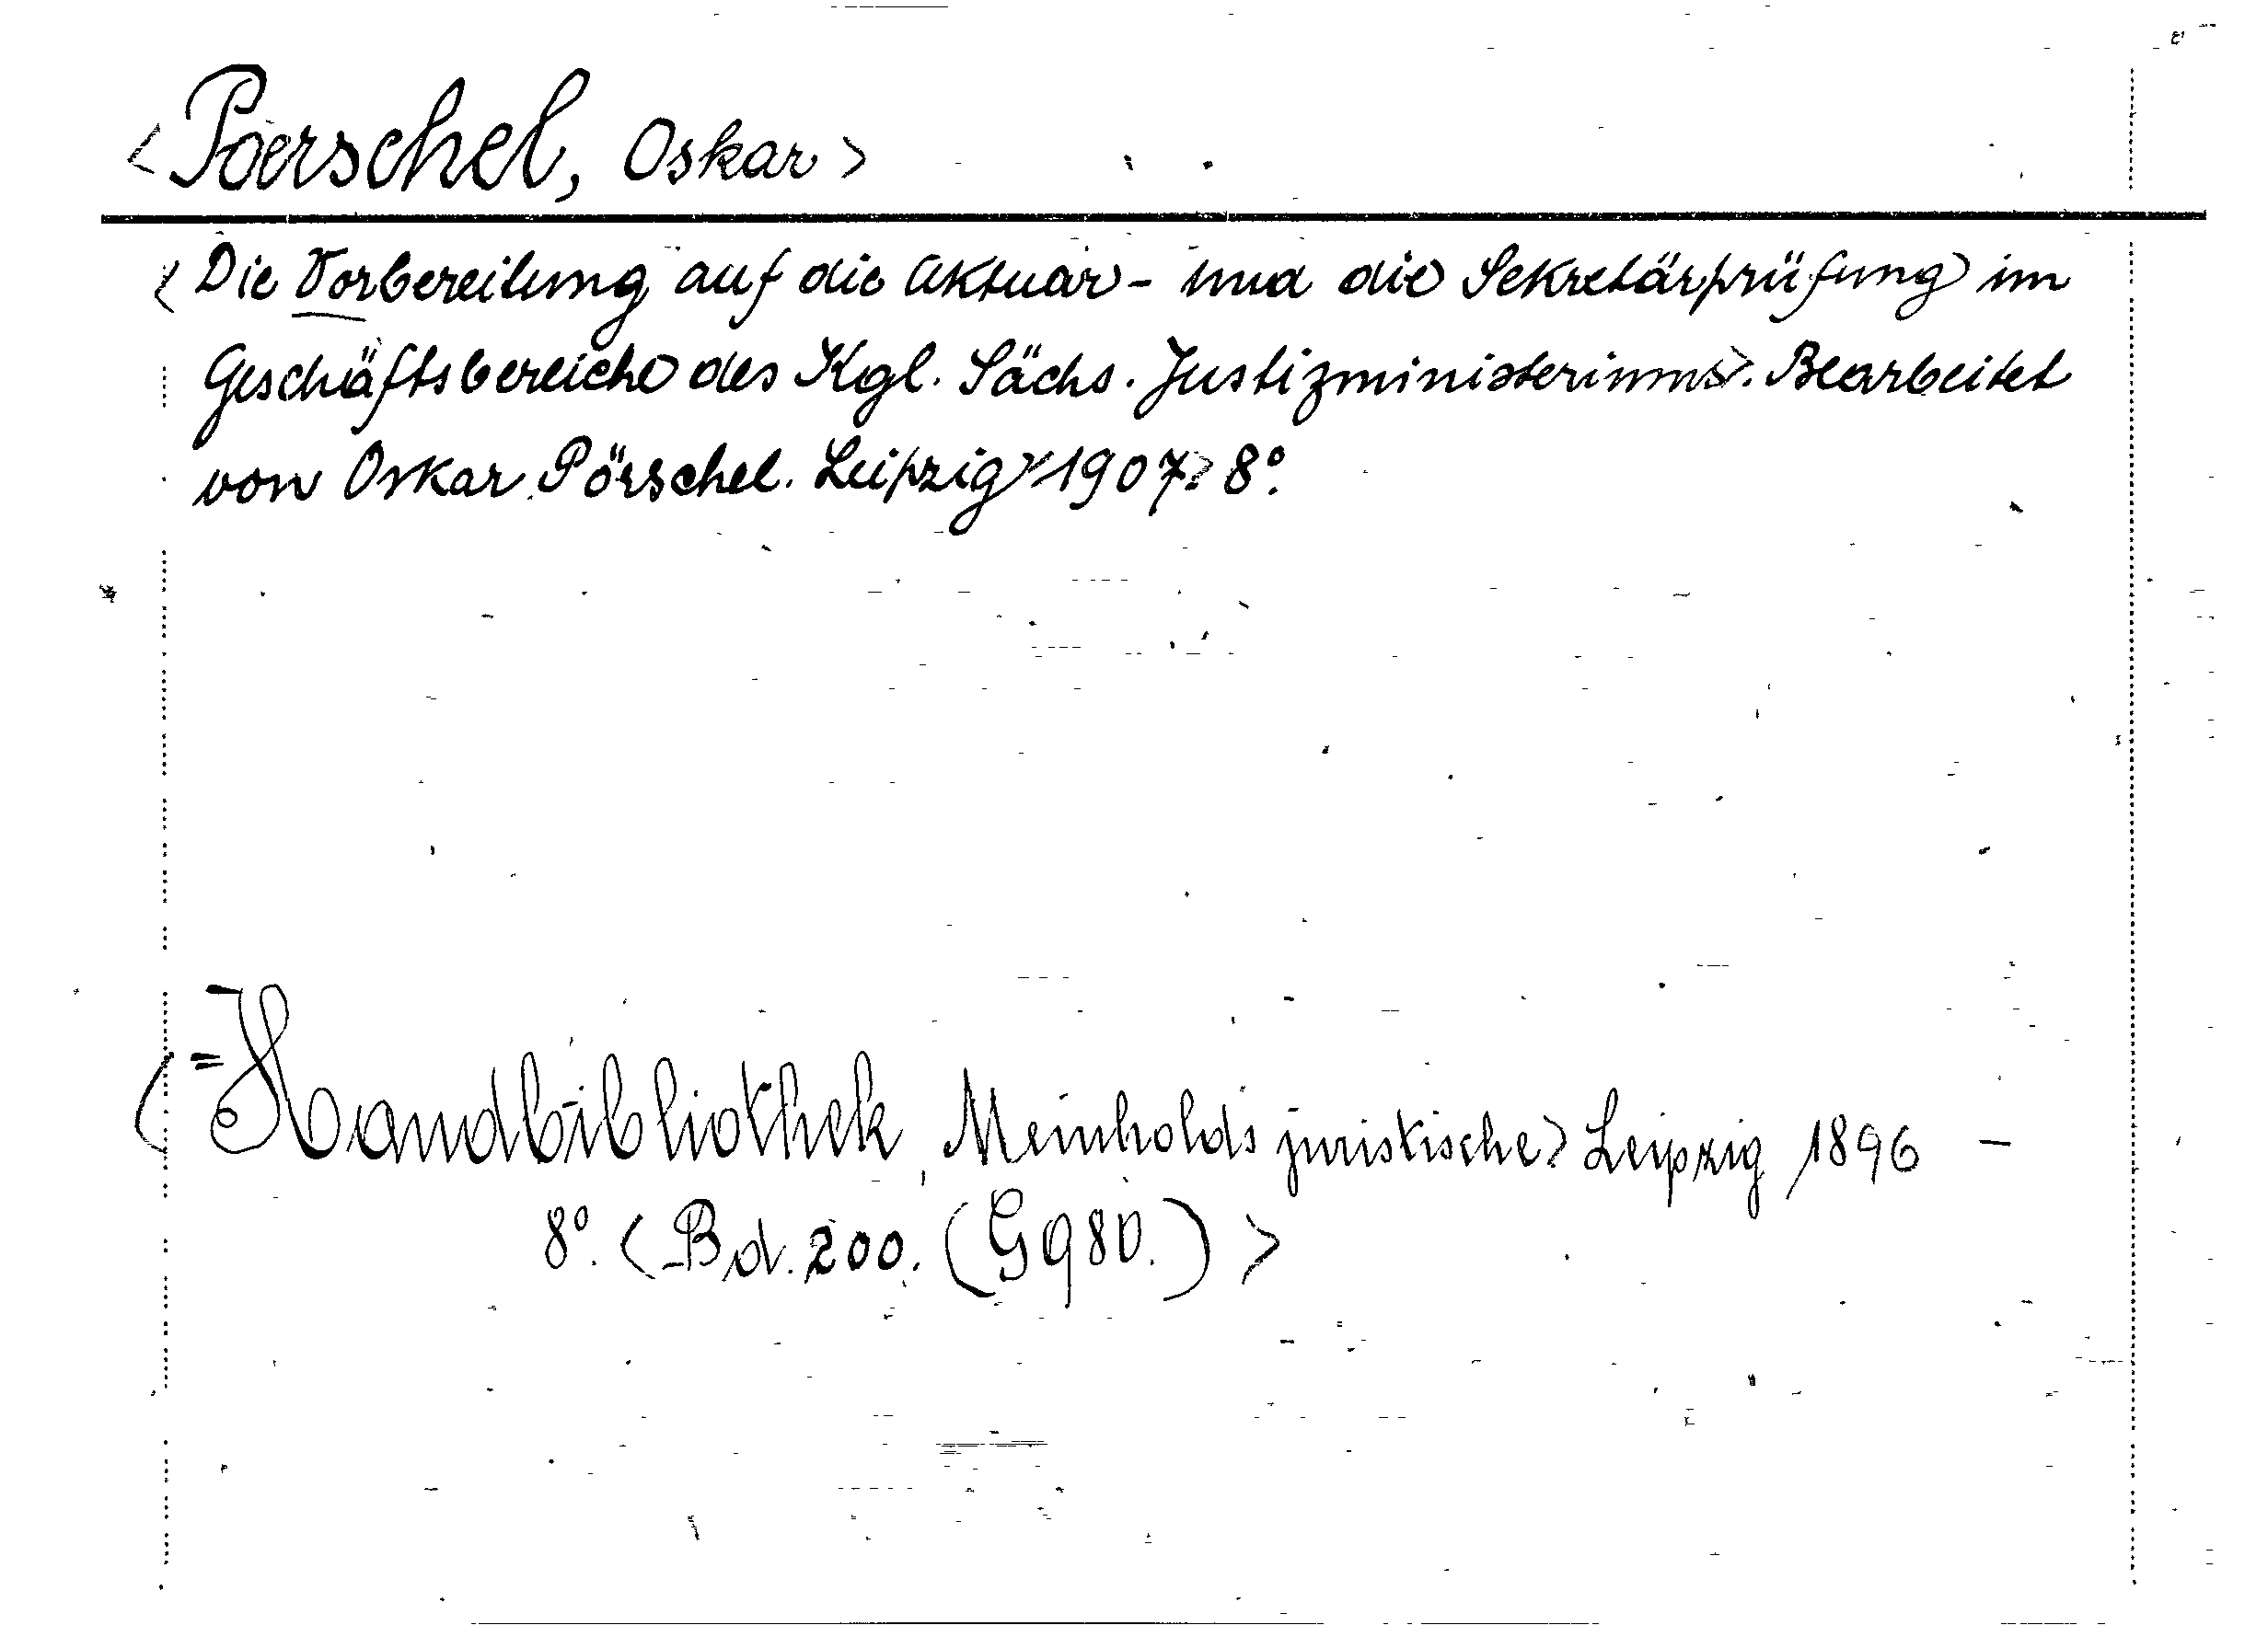 <Poerschel, Oskar>
<Die Vorbereitung auf die Aktuar- und die Sekretärprüfung im
Geschäftsbereiche des Kgl. Sächs. Justizministeriums>. Bearbeitet
von Oskar Pörschel. Leipzig <1907> 8°.
<= Handbibliothek, Meinholds juristische> Leipzig 1896 –
8°. <Bd. 200. (G 980.)>